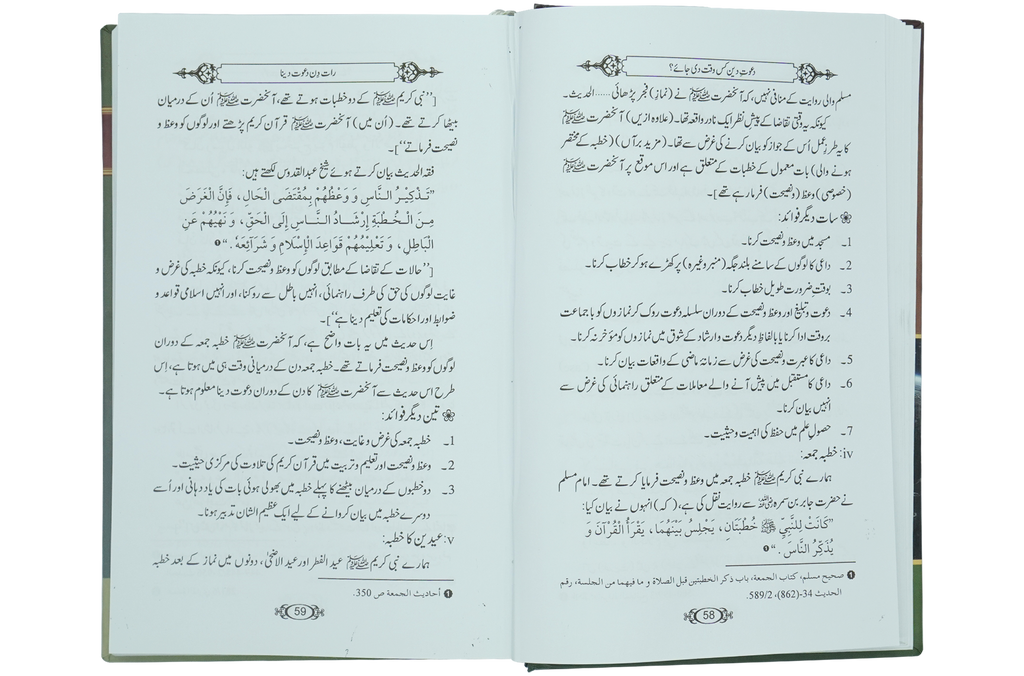 دعوتِ دین کس وقت دی جائے؟
مسلم والی روایت کے منافی نہیں، کہ آنحضرت ﷺ نے (نماز) فجر پڑھائی...... الحدیث۔
کیونکہ یہ وقتی تقاضا کے پیشِ نظر ایک نادر واقعہ تھا۔ (علاوہ ازیں) آنحضرت ﷺ
کا یہ طرزِ عمل اُس کے جواز کو بیان کرنے کی غرض سے تھا۔ (مزید برآں) (خطبہ کے مختصر
ہونے والی) بات معمول کے خطبات کے متعلق ہے اور اس موقع پر آنحضرت ﷺ
(خصوصی) وعظ (ونصیحت) فرما رہے تھے]۔
سات دیگر فوائد:
1۔ مسجد میں وعظ ونصیحت کرنا۔
2۔ داعی کا لوگوں کے سامنے بلند جگہ (منبر وغیرہ) پر کھڑے ہو کر خطاب کرنا۔
3۔ بوقتِ ضرورت طویل خطاب کرنا۔
4۔ دعوت وتبلیغ اور وعظ ونصیحت کے دوران سلسلہ دعوت روک کر نمازوں کو باجماعت
بروقت ادا کرنا یا بالفاظِ دیگر دعوت وارشاد کے شوق میں نمازوں کو مؤخر نہ کرنا۔
5۔ داعی کا عبرت ونصیحت کی غرض سے زمانۂ ماضی کے واقعات بیان کرنا۔
6۔ داعی کا مستقبل میں پیش آنے والے معاملات کے متعلق راہنمائی کی غرض سے
انہیں بیان کرنا۔
7۔ حصولِ علم میں حفظ کی اہمیت وحیثیت۔
iv: خطبہ جمعہ:
ہمارے نبی کریم ﷺ خطبہ جمعہ میں وعظ ونصیحت فرمایا کرتے تھے۔ امام مسلم
نے حضرت جابر بن سمرہ رضی اللہ عنہ سے روایت نقل کی ہے، (کہ) انہوں نے بیان کیا:
”كَانَتْ لِلنَّبِيِّ ﷺ خُطْبَتَانِ، يَجْلِسُ بَيْنَهُمَا، يَقْرَأُ الْقُرْآنَ وَ
يُذَكِّرُ النَّاسَ.“❶
❶ صحيح مسلم، كتاب الجمعة، باب ذكر الخطبتين قبل الصلاة و ما فيهما من الجلسة، رقم
الحديث 34-(862)، 589/2.
58
رات دن دعوت دینا
[’’نبی کریم ﷺ کے دو خطبات ہوتے تھے، آنحضرت ﷺ اُن کے درمیان
بیٹھا کرتے تھے۔ (اُن میں) آنحضرت ﷺ قرآن کریم پڑھتے اور لوگوں کو وعظ و
نصیحت فرماتے‘‘]۔
فقہ الحدیث بیان کرتے ہوئے شیخ عبدالقدوس لکھتے ہیں:
”تَذْكِيْرُ النَّاسِ وَ وَعْظُهُمْ بِمُقْتَضَى الْحَالِ، فَإِنَّ الْغَرَضَ
مِنَ الْخُطْبَةِ إِرْشَادُ النَّاسِ إِلَى الْحَقِّ، وَ نَهْيُهُمْ عَنِ
الْبَاطِلِ، وَ تَعْلِيْمُهُمْ قَوَاعِدَ الْإِسْلَامِ وَ شَرَائِعَهُ.“❶
[’’حالات کے تقاضا کے مطابق لوگوں کو وعظ ونصیحت کرنا، کیونکہ خطبہ کی غرض و
غایت لوگوں کی حق کی طرف راہنمائی، انہیں باطل سے روکنا، اور انہیں اسلامی قواعد و
ضوابط اور احکامات کی تعلیم دینا ہے‘‘]۔
اِس حدیث میں یہ بات واضح ہے، کہ آنحضرت ﷺ خطبہ جمعہ کے دوران
لوگوں کو وعظ ونصیحت فرماتے تھے۔ خطبہ جمعہ دن کے درمیانی وقت ہی میں ہوتا ہے، اِس
طرح اس حدیث سے آنحضرت ﷺ کا دن کے دوران دعوت دینا معلوم ہوتا ہے۔
تین دیگر فوائد:
1۔ خطبہ جمعہ کی غرض وغایت، وعظ ونصیحت۔
2۔ وعظ ونصیحت اور تعلیم وتربیت میں قرآن کریم کی تلاوت کی مرکزی حیثیت۔
3۔ دو خطبوں کے درمیان بیٹھنے کا پہلے خطبہ میں بھولی ہوئی بات کی یاد دہانی اور اُسے
دوسرے خطبہ میں بیان کروانے کے لیے ایک عظیم الشان تدبیر ہونا۔
v: عیدین کا خطبہ:
ہمارے نبی کریم ﷺ عید الفطر اور عید الاضحیٰ، دونوں میں نماز کے بعد خطبہ
❶ أحاديث الجمعة ص 350.
59